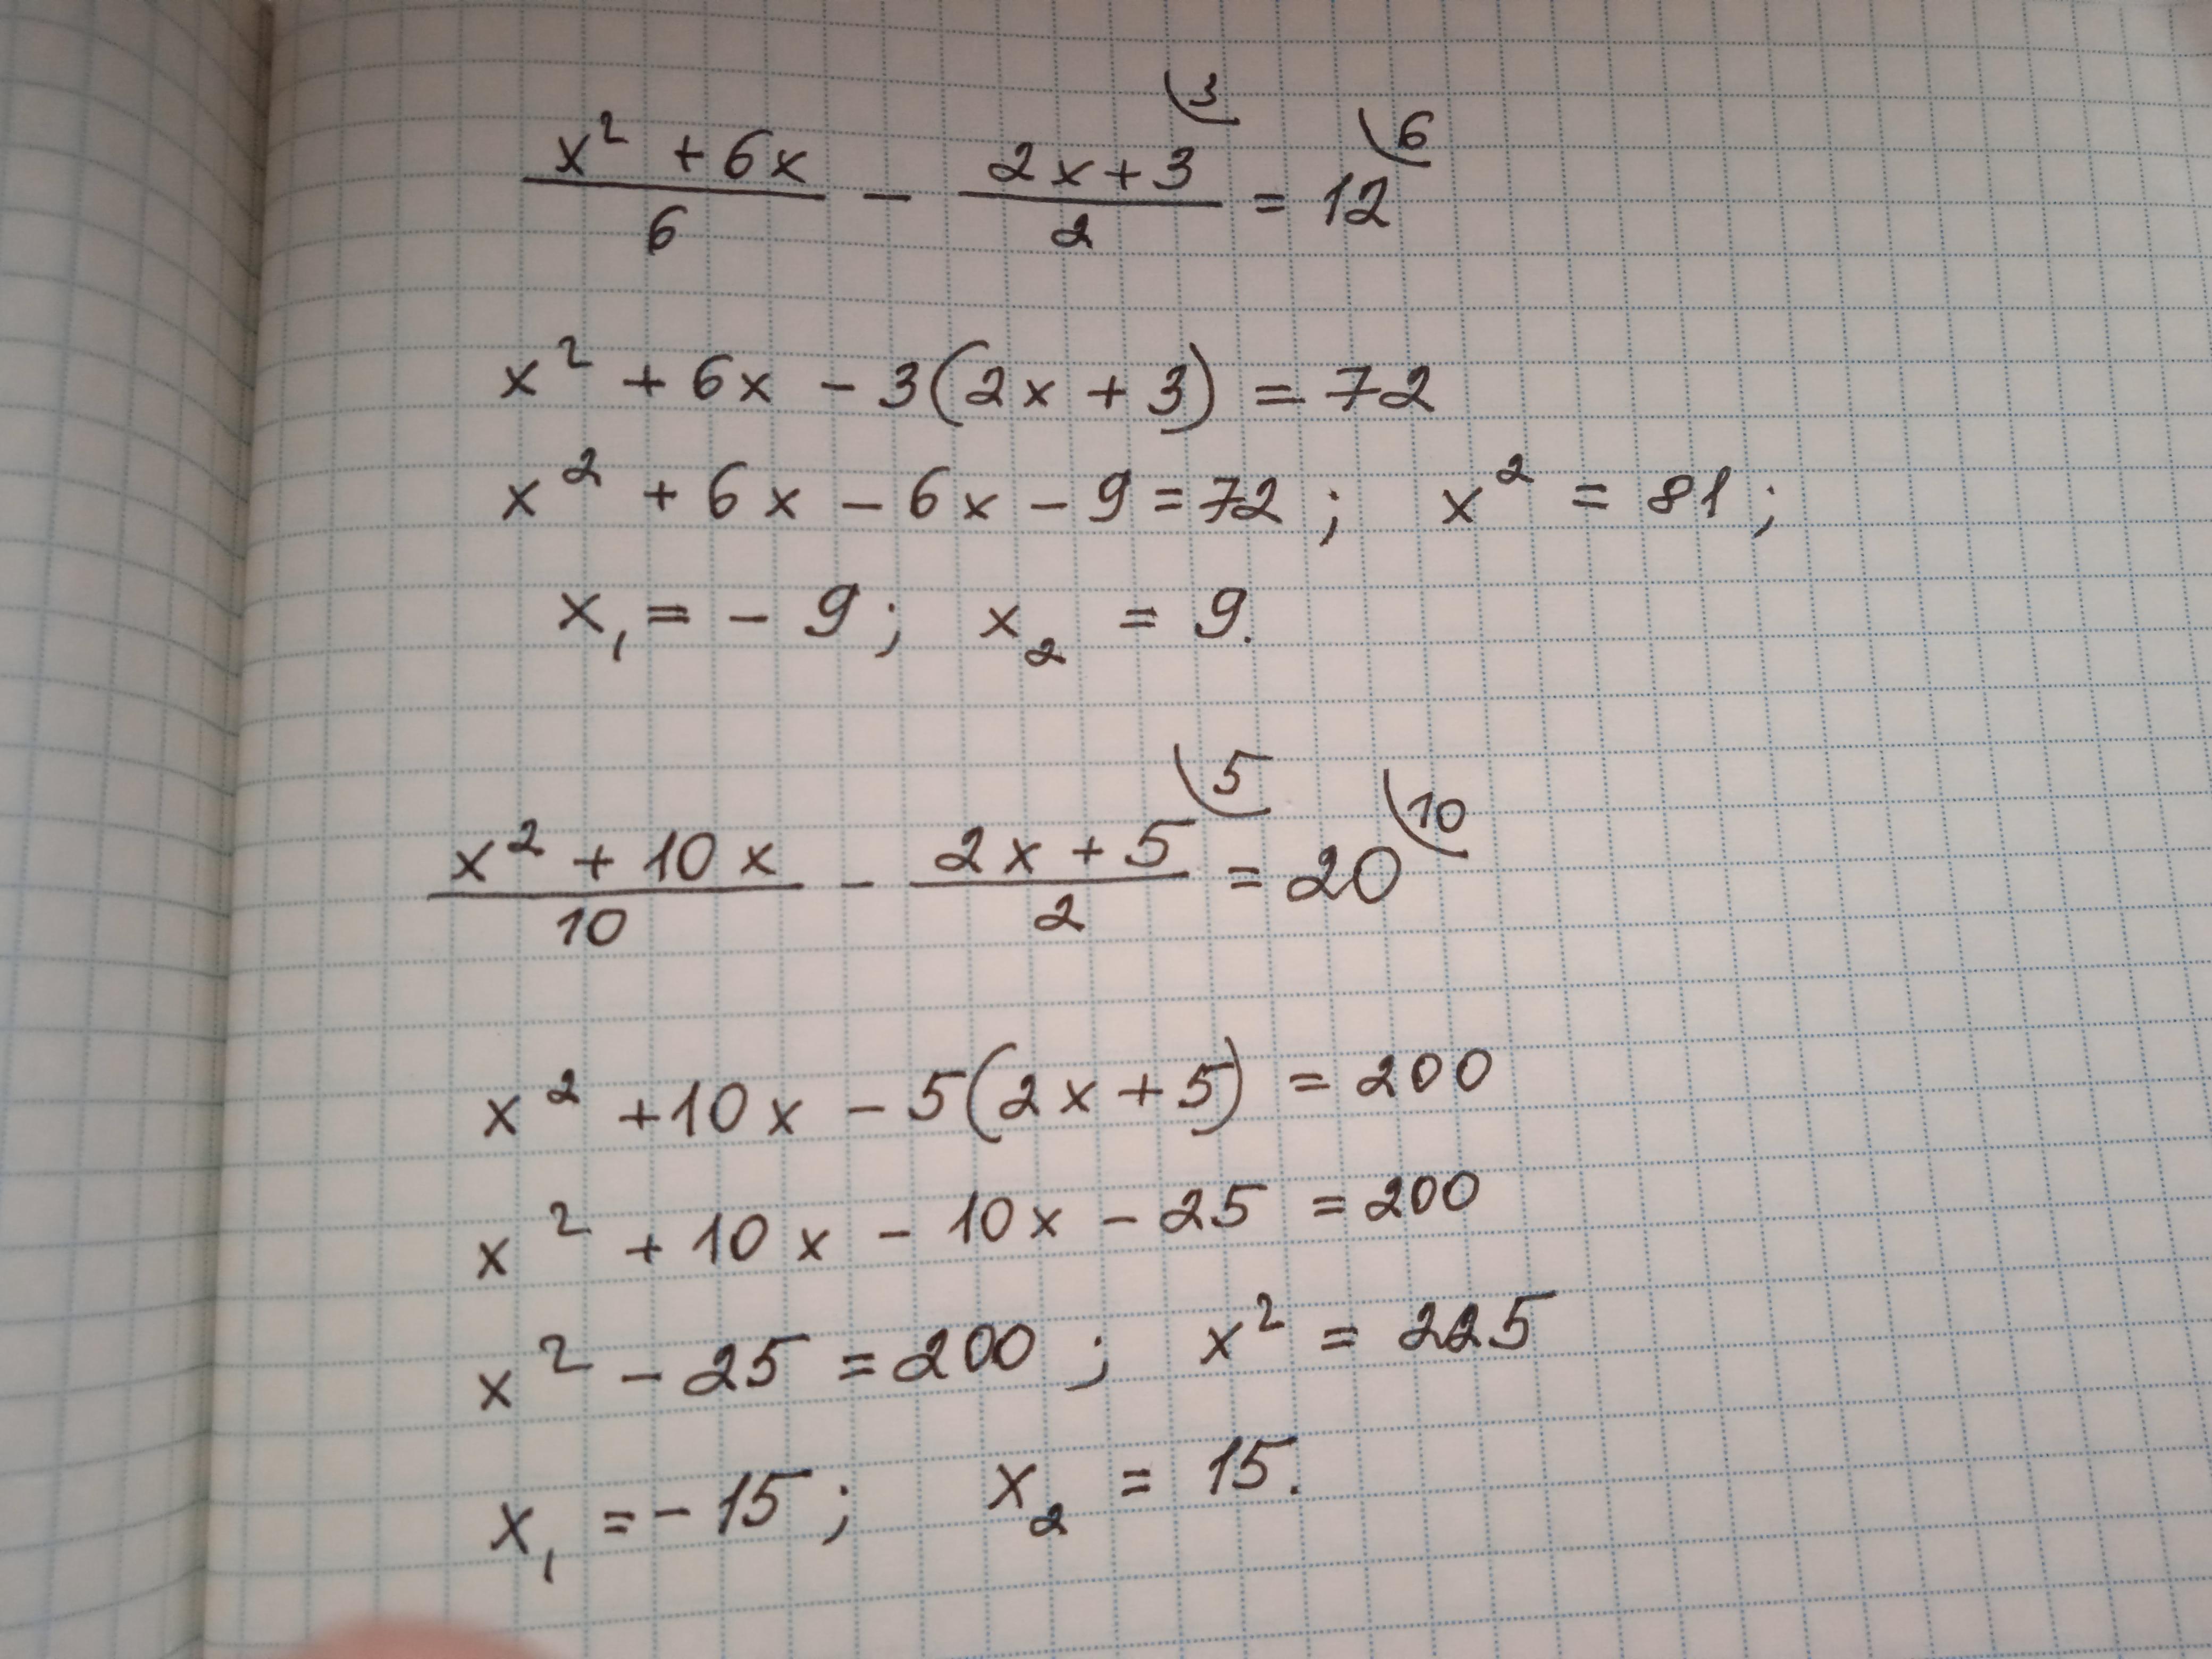 \frac{x^2 + 6x}{6} - \frac{2x + 3}{2}^{\backslash 3} = 12^{\backslash 6}
x^2 + 6x - 3(2x + 3) = 72
x^2 + 6x - 6x - 9 = 72 ; x^2 = 81 ;
x_1 = - 9 ; x_2 = 9.
\frac{x^2 + 10x}{10} - \frac{2x + 5}{2}^{\backslash 5} = 20^{\backslash 10}
x^2 + 10x - 5(2x + 5) = 200
x^2 + 10x - 10x - 25 = 200
x^2 - 25 = 200 ; x^2 = 225
x_1 = - 15 ; x_2 = 15.